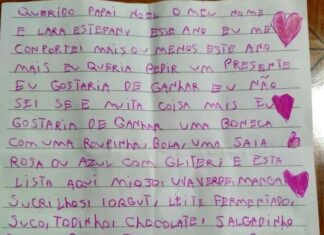 QUERIDO PAPAI NOEL O MEU NOME
E LARA ESTEFANY ESSE ANO EU ME
COMPORTEI MAIS OU MENOS ESTE ANO
MAIS EU QUERIA PEDIR UM PRESENTE
EU GOSTARIA DE GANHAR EU NÃO
SEI SE E MUITA COISA MAIS EU
GOSTARIA DE GANHAR UMA BONECA
COM UMA ROUPINHA, BOLA, UMA SAIA
ROSA OU AZUL COM GLITER, E ESTA
LISTA AQUI MIOJO, UVA VERDE, MANGA,
SUCRILHOS, IORGUT, LEITE FERMENTADO,
SUCO, TODINHO, CHOCOLATE, SALGADINHO